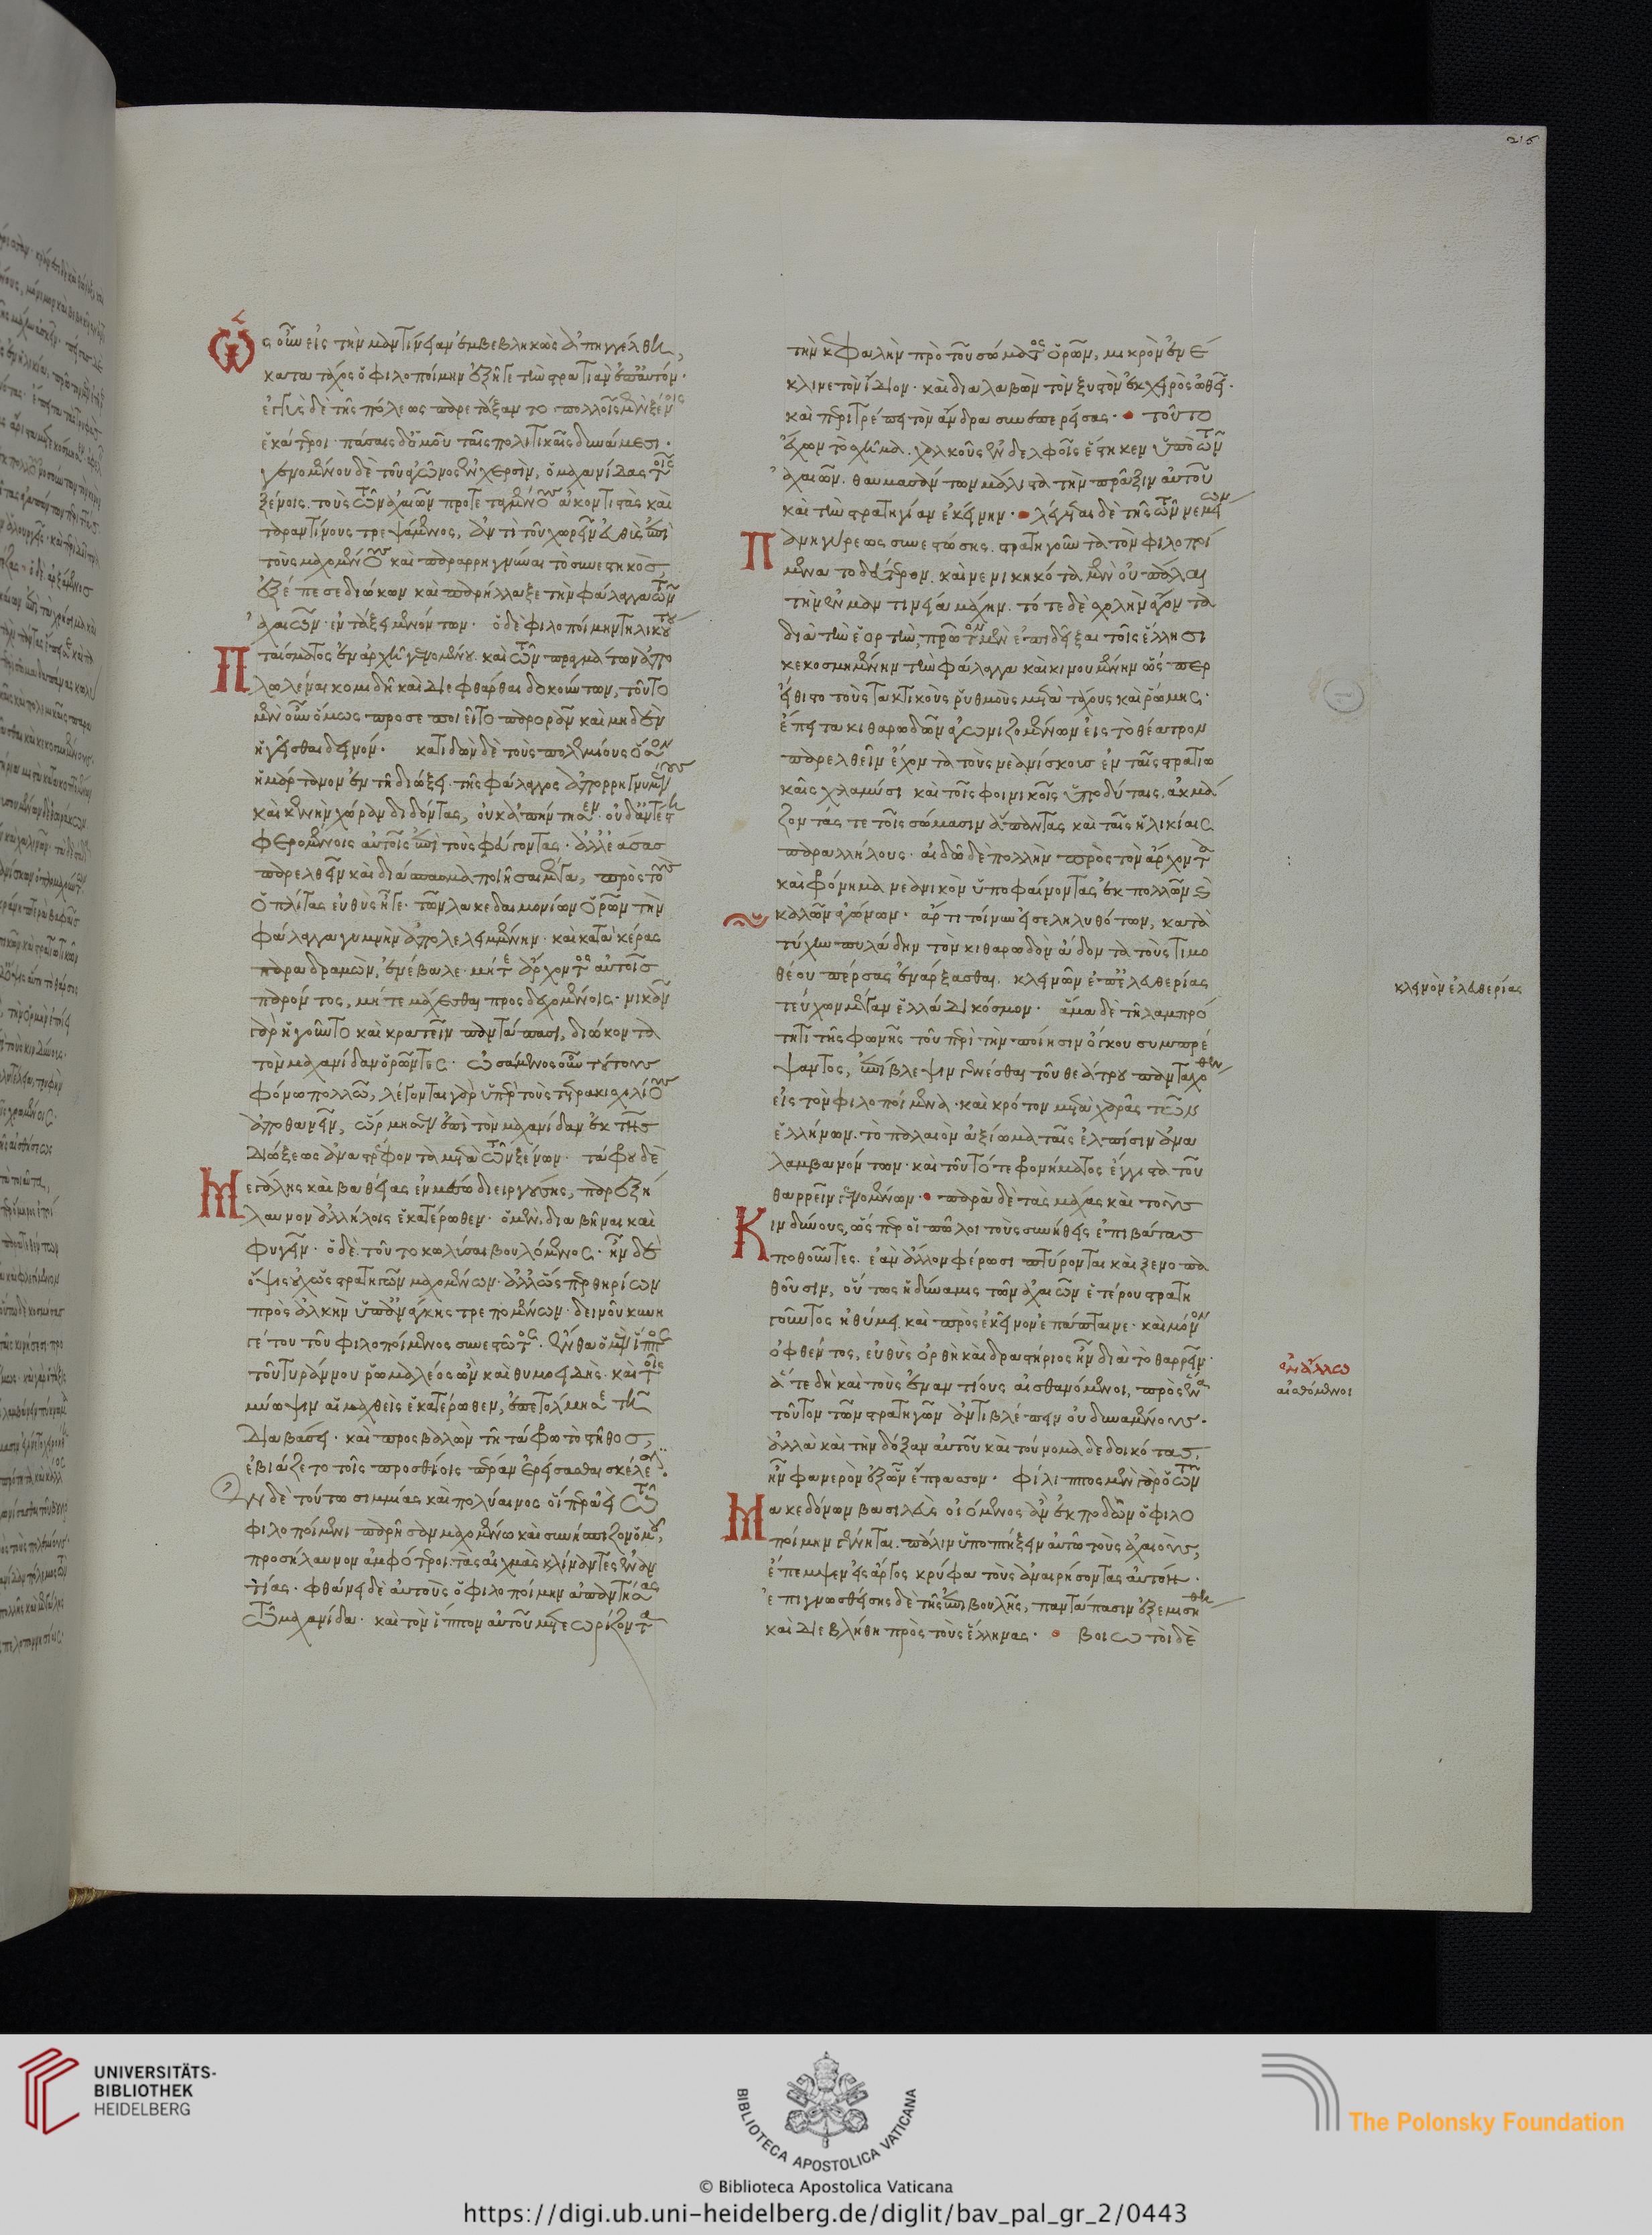 Ὡς οὖν εἰς τὴν μαντίνειαν ἐμβεβληκὼς ἀπηγγέλθη,
κατὰ τάχος ὁ φιλοποίμην ἐξῆγε τὴν στρατιὰν ἐπ' αὐτόν.
ἐγγὺς δὲ τῆς πόλεως παρετάξαντο πολλοῖς μὲν ξένοις
ἑκάτεροι· πάσαις δ' ὁμοῦ ταῖς πολιτικαῖς δυνάμεσι.
γενομένου δὲ τοῦ ἀγῶνος ἐν χερσὶν, ὁ μαχανίδας τοῖς
ξένοις τοὺς τῶν ἀχαιῶν προτεταγμένους ἀκοντιστὰς καὶ
ταραντίνους τρεψάμενος, ἀντὶ τοῦ χωρεῖν εὐθὺς ἐπὶ
τοὺς μαχομένους καὶ παραρρηγνύναι τὸ συνεστηκὸς,
ἐξέπεσε διώκων καὶ παρήλλαξε τὴν φάλαγγα τῶν
ἀχαιῶν ἐν τάξει μενόντων. ὁ δὲ φιλοποίμην τηλικούτου
Πταίσματος ἐν ἀρχῇ γενομένου καὶ τῶν πραγμάτων ἀπο
λωλέναι κομιδῆ καὶ διεφθάρθαι δοκούντων, τοῦτο
μὲν οὖν ὅμως προσεποιεῖτο παρορᾶν καὶ μηδὲν
ἡγεῖσθαι δεινόν. κατιδὼν δὲ τοὺς πολεμίους ὅσον
ἡμάρτανον ἐν τῇ διώξει τῆς φάλαγγος ἀπορρηγνυμένους
καὶ κενὴν χώραν διδόντας, οὐκ ἀπήντησεν οὐδ' ἀντέστη
φερομένοις αὐτοῖς ἐπὶ τοὺς φεύγοντας· ἀλλ' ἐάσας
παρελθεῖν καὶ διάσπασμα ποιῆσαι μέγα, πρὸς τοὺς
ὁπλίτας εὐθὺς ἦγε τῶν λακεδαιμονίων ὁρῶν τὴν
φάλαγγα γυμνὴν ἀπολελειμμένην· καὶ κατὰ κέρας
παραδραμὼν, ἐνέβαλε μήτε ἄρχοντος αὐτοῖς
παρόντος, μήτε μάχεσθαι προσδεχομένοις· νικᾶν
γὰρ ἡγοῦντο καὶ κρατεῖν παντάπασι, διώκοντα
τὸν μαχανίδαν ὁρῶντες. ὠσάμενος οὖν τούτους
φόνω πολλῶ, λέγονται γὰρ ὑπὲρ τοὺς τετρακισχιλίους
ἀποθανεῖν, ὥρμησεν ἐπὶ τὸν μαχανίδαν ἐκ τῆς
διώξεως ἀναστρέφοντα μετὰ τῶν ξένων. τάφρου δὲ
Μεγάλης καὶ βαθείας ἐν μέσω διειργούσης, παρεξή
λαυνον ἀλλήλοις ἑκατέρωθεν· ὁ μὲν διαβῆναι καὶ
φυγεῖν· ὁ δὲ τοῦτο κωλῦσαι βουλόμενος. ἦν δὲ
ὄψις οὐχ ὡς στρατηγῶν μαχομένων· ἀλλ' ὥσπερ θηρίων
πρὸς ἀλκὴν ὑπ' ἀνάγκης τρεπομένων· δεινοῦ κυνη
γέτου τοῦ φιλοποίμενος συνεστῶτος. ἔνθα ὁ μὲν ἵππος
τοῦ τυράννου ῥωμαλέος ὢν καὶ θυμοειδὴς· καὶ τοῖς
μύωψιν αἱμαχθεὶς ἑκατέρωθεν, ἐπετόλμησε τῇ
διαβάσει· καὶ προσβαλὼν τῇ τάφρω τὸ στῆθος,
ἐβιάζετο τοῖς προσθίοις πέραν ἐρείσασθαι σκέλεσιν.
Ἐν δὲ τούτω σιμμίας καὶ πολύαινος οἵπερ ἀεὶ τῶ
φιλοποίμενι παρῆσαν μαχομένω καὶ συνήσπιζον ὁμοῦ,
προσήλαυνον ἀμφότεροι τὰς αἰχμὰς κλίναντες ἐναν
τίας. φθάνει δὲ αὐτοὺς ὁ φιλοποίμην ἀπαντήσας
τῶ μαχανίδα· καὶ τὸν ἵππον αὐτοῦ μετεωρίζοντα
τὴν κεφαλὴν πρὸ τοῦ σώματος ὁρῶν, μικρὸν ἐνέ
κλινε τὸν ἴδιον· καὶ διαλαβὼν τὸν ξυστὸν ἐκ χειρὸς ὠθεῖ.
καὶ περιτρέπει τὸν ἄνδρα συνεπερείσας. τοῦτο
ἔχων τὸ σχῆμα χαλκοῦς ἐν δελφοῖς ἕστηκεν ὑπὸ τῶν
ἀχαιῶν. θαυμασάντων μάλιστα τὴν πρᾶξιν αὐτοῦ
καὶ τὴν στρατηγίαν ἐκείνην. λέγεται δὲ τῆς τῶν νεμείων
Πανηγύρεως συνεστώσης στρατηγοῦντα τὸν φιλοποί
μενα τὸ δεύτερον καὶ νενικηκότα μὲν οὐ πάλαι
τὴν ἐν μαντινεία μάχην. τότε δὲ σχολὴν ἄγοντα
διὰ τὴν ἑορτὴν, πρῶτον μὲν ἐπιδεῖξαι τοῖς ἕλλησι
κεκοσμημένην τὴν φάλαγγα καὶ κινουμένην ὥσπερ
εἴθιστο τοὺς τακτικοὺς ῥυθμοὺς μετὰ τάχους καὶ ῥώμης.
ἔπειτα κιθαρωδῶν ἀγωνιζομένων εἰς τὸ θέατρον
παρελθεῖν ἔχοντα τοὺς νεανίσκους ἐν ταῖς στρατιω
τικαῖς χλαμύσι καὶ τοῖς φοινικοῖς ὑποδύταις, ἀκμά
ζοντάς τε τοῖς σώμασιν ἅπαντας καὶ ταῖς ἡλικίαις
παραλλήλους· αἰδῶ δὲ πολλὴν πρὸς τὸν ἄρχοντα
καὶ φρόνημα νεανικὸν ὑποφαίνοντας ἐκ πολλῶν καὶ
καλῶν ἀγώνων. ἄρτι τοίνυν εἰσεληλυθότων, κατὰ
τύχην πυλάδην τὸν κιθαρωδὸν ἄδοντα τοὺς τιμο
θέου πέρσας ἐνάρξασθαι. κλεινῶν ἐπ' ἐλευθερίας
τεύχων μέγαν ἑλλάδι κόσμον. ἅμα δὲ τῆ λαμπρό
τητι τῆς φωνῆς τοῦ περὶ τὴν ποίησιν ὄγκου συμπρέ
ψαντος, ἐπίβλεψιν γενέσθαι τοῦ θεάτρου πανταχόθεν
εἰς τὸν φιλοποίμενα· καὶ κρότον μετὰ χαρᾶς τῶν
ἑλλήνων. τὸ παλαιὸν ἀξίωμα ταῖς ἐλπίσιν ἀνα
λαμβανόντων· καὶ τοῦ τότε φρονήματος ἔγγιστα τοῦ
θαρρεῖν γενομένων. παρὰ δὲ τὰς μάχας καὶ τοὺς
Κινδύνους, ὥσπερ οἱ πῶλοι τοὺς συνήθεις ἐπιβάτας
ποθοῦντες. ἐὰν ἄλλον φέρωσι πτύρονται καὶ ξενοπα
θοῦσιν, οὕτως ἡ δύναμις τῶν ἀχαιῶν ἑτέρου στρατη
γοῦντος ἠθύμει καὶ πρὸς ἐκεῖνον ἐπάπταινε· καὶ μόνον
ὀφθέντος, εὐθὺς ὀρθὴ καὶ δραστήριος ἦν διὰ τὸ θαρρεῖν·
ἅτε δὴ καὶ τοὺς ἐναντίους αἰσθανόμενοι, πρὸς ἕνα
τοῦτον τῶν στρατηγῶν ἀντιβλέπειν οὐ δυναμένους.
ἀλλὰ καὶ τὴν δόξαν αὐτοῦ καὶ τοὔνομα δεδοικότας,
ἦν φανερὸν ἐξ ὧν ἔπρασσον. φίλιππος μὲν γὰρ ὁ τῶν
Μακεδόνων βασιλεὺς οἰόμενος ἂν ἐκποδῶν ὁ φιλο
ποίμην γένηται πάλιν ὑποπτήξειν αὐτῶ τοὺς ἀχαιοὺς,
ἔπεμψεν εἰς ἄργος κρύφα τοὺς ἀναιρήσοντας αὐτόν.
ἐπιγνωσθείσης δὲ τῆς ἐπιβουλῆς, παντάπασιν ἐξεμισήθη
καὶ διεβλήθη πρὸς τοὺς ἕλληνας. βοιωτοὶ δὲ
κλεινὸν ἐλευθερίας
ἐν ἄλλω
αἰσθόμενοι
216
UNIVERSITÄTS-
BIBLIOTHEK
HEIDELBERG
BIBLIOTECA APOSTOLICA VATICANA
The Polonsky Foundation
© Biblioteca Apostolica Vaticana
https://digi.ub.uni-heidelberg.de/diglit/bav_pal_gr_2/0443